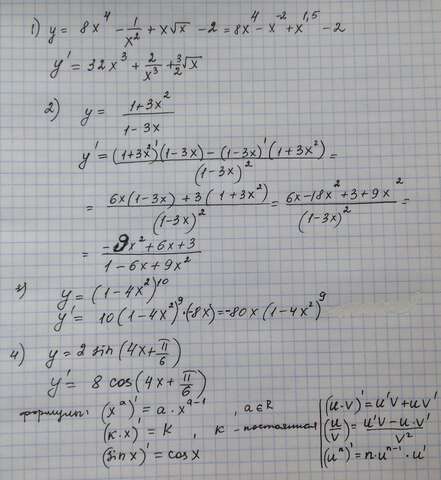 1) y = 8x⁴ - 1/x² + x√x - 2 = 8x⁴ - x⁻² + x^1,5 - 2
y' = 32x³ + 2/x³ + 3/2 √x
2) y = (1+3x²)/(1-3x)
y' = ((1+3x²)'(1-3x) - (1-3x)'(1+3x²))/(1-3x)² =
= (6x(1-3x) + 3(1+3x²))/(1-3x)² = (6x-18x²+3+9x²)/(1-3x)² =
= (-9x²+6x+3)/(1-6x+9x²)
3) y = (1-4x²)¹⁰
y' = 10(1-4x²)⁹·(-8x) = -80x(1-4x²)⁹
4) y = 2 sin(4x+π/6)
y' = 8 cos(4x+π/6)
формулы: (xᵃ)' = a·xᵃ⁻¹, a∈R
(к·x)' = к, к - постоянная
(sin x)' = cos x
(u·v)' = u'v + uv'
(u/v)' = (u'v - u·v')/v²
(uⁿ)' = n·uⁿ⁻¹·u'